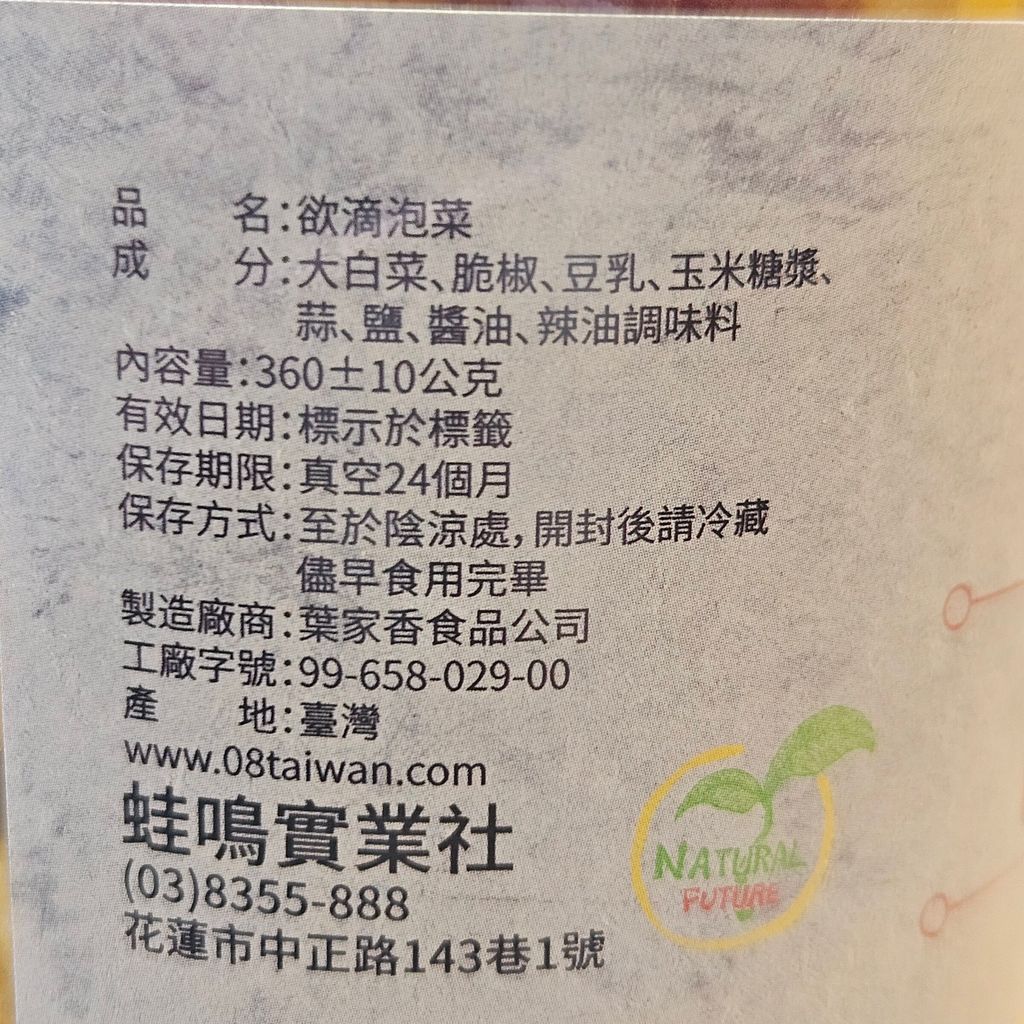 品　　名：欲滴泡菜
成　　分：大白菜、脆椒、豆乳、玉米糖漿、
蒜、鹽、醬油、辣油調味料
內容量：360±10公克
有效日期：標示於標籤
保存期限：真空24個月
保存方式：至於陰涼處，開封後請冷藏
儘早食用完畢
製造廠商：葉家香食品公司
工廠字號：99-658-029-00
產　　地：臺灣
www.08taiwan.com
蛙鳴實業社
(03)8355-888
花蓮市中正路143巷1號
NATURAL
FUTURE